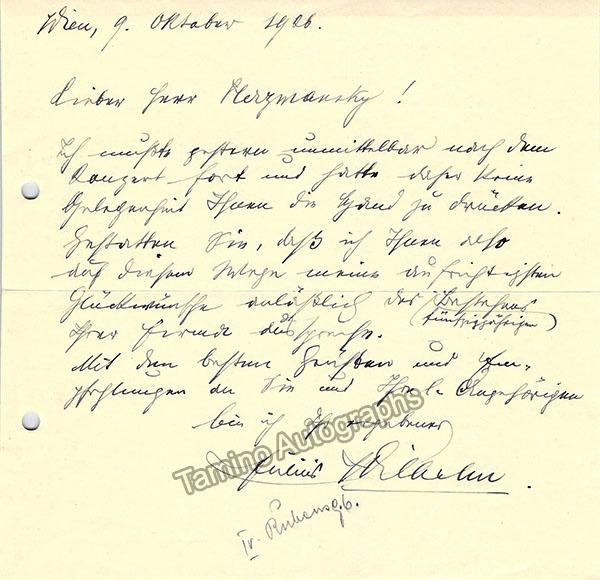 Wien, 9. Oktober 1926.
Lieber Herr Herzmansky!
Ich mußte gestern unmittelbar nach dem
Konzert fort und hatte daher keine
Gelegenheit Ihnen die Hand zu drücken.
Gestatten Sie, daß ich Ihnen also
auf diesem Wege meine aufrichtigsten
Glückwünsche anläßlich des Bestehens
(fünfzigjährigen)
Ihrer Firma ausspreche.
Mit den besten Grüßen und Em-
pfehlungen an Sie und Ihre Angehörigen
bin ich Ihr ergebener
Julius Wilhelm.
IV. Rubensg. 6.
Tamino Autographs